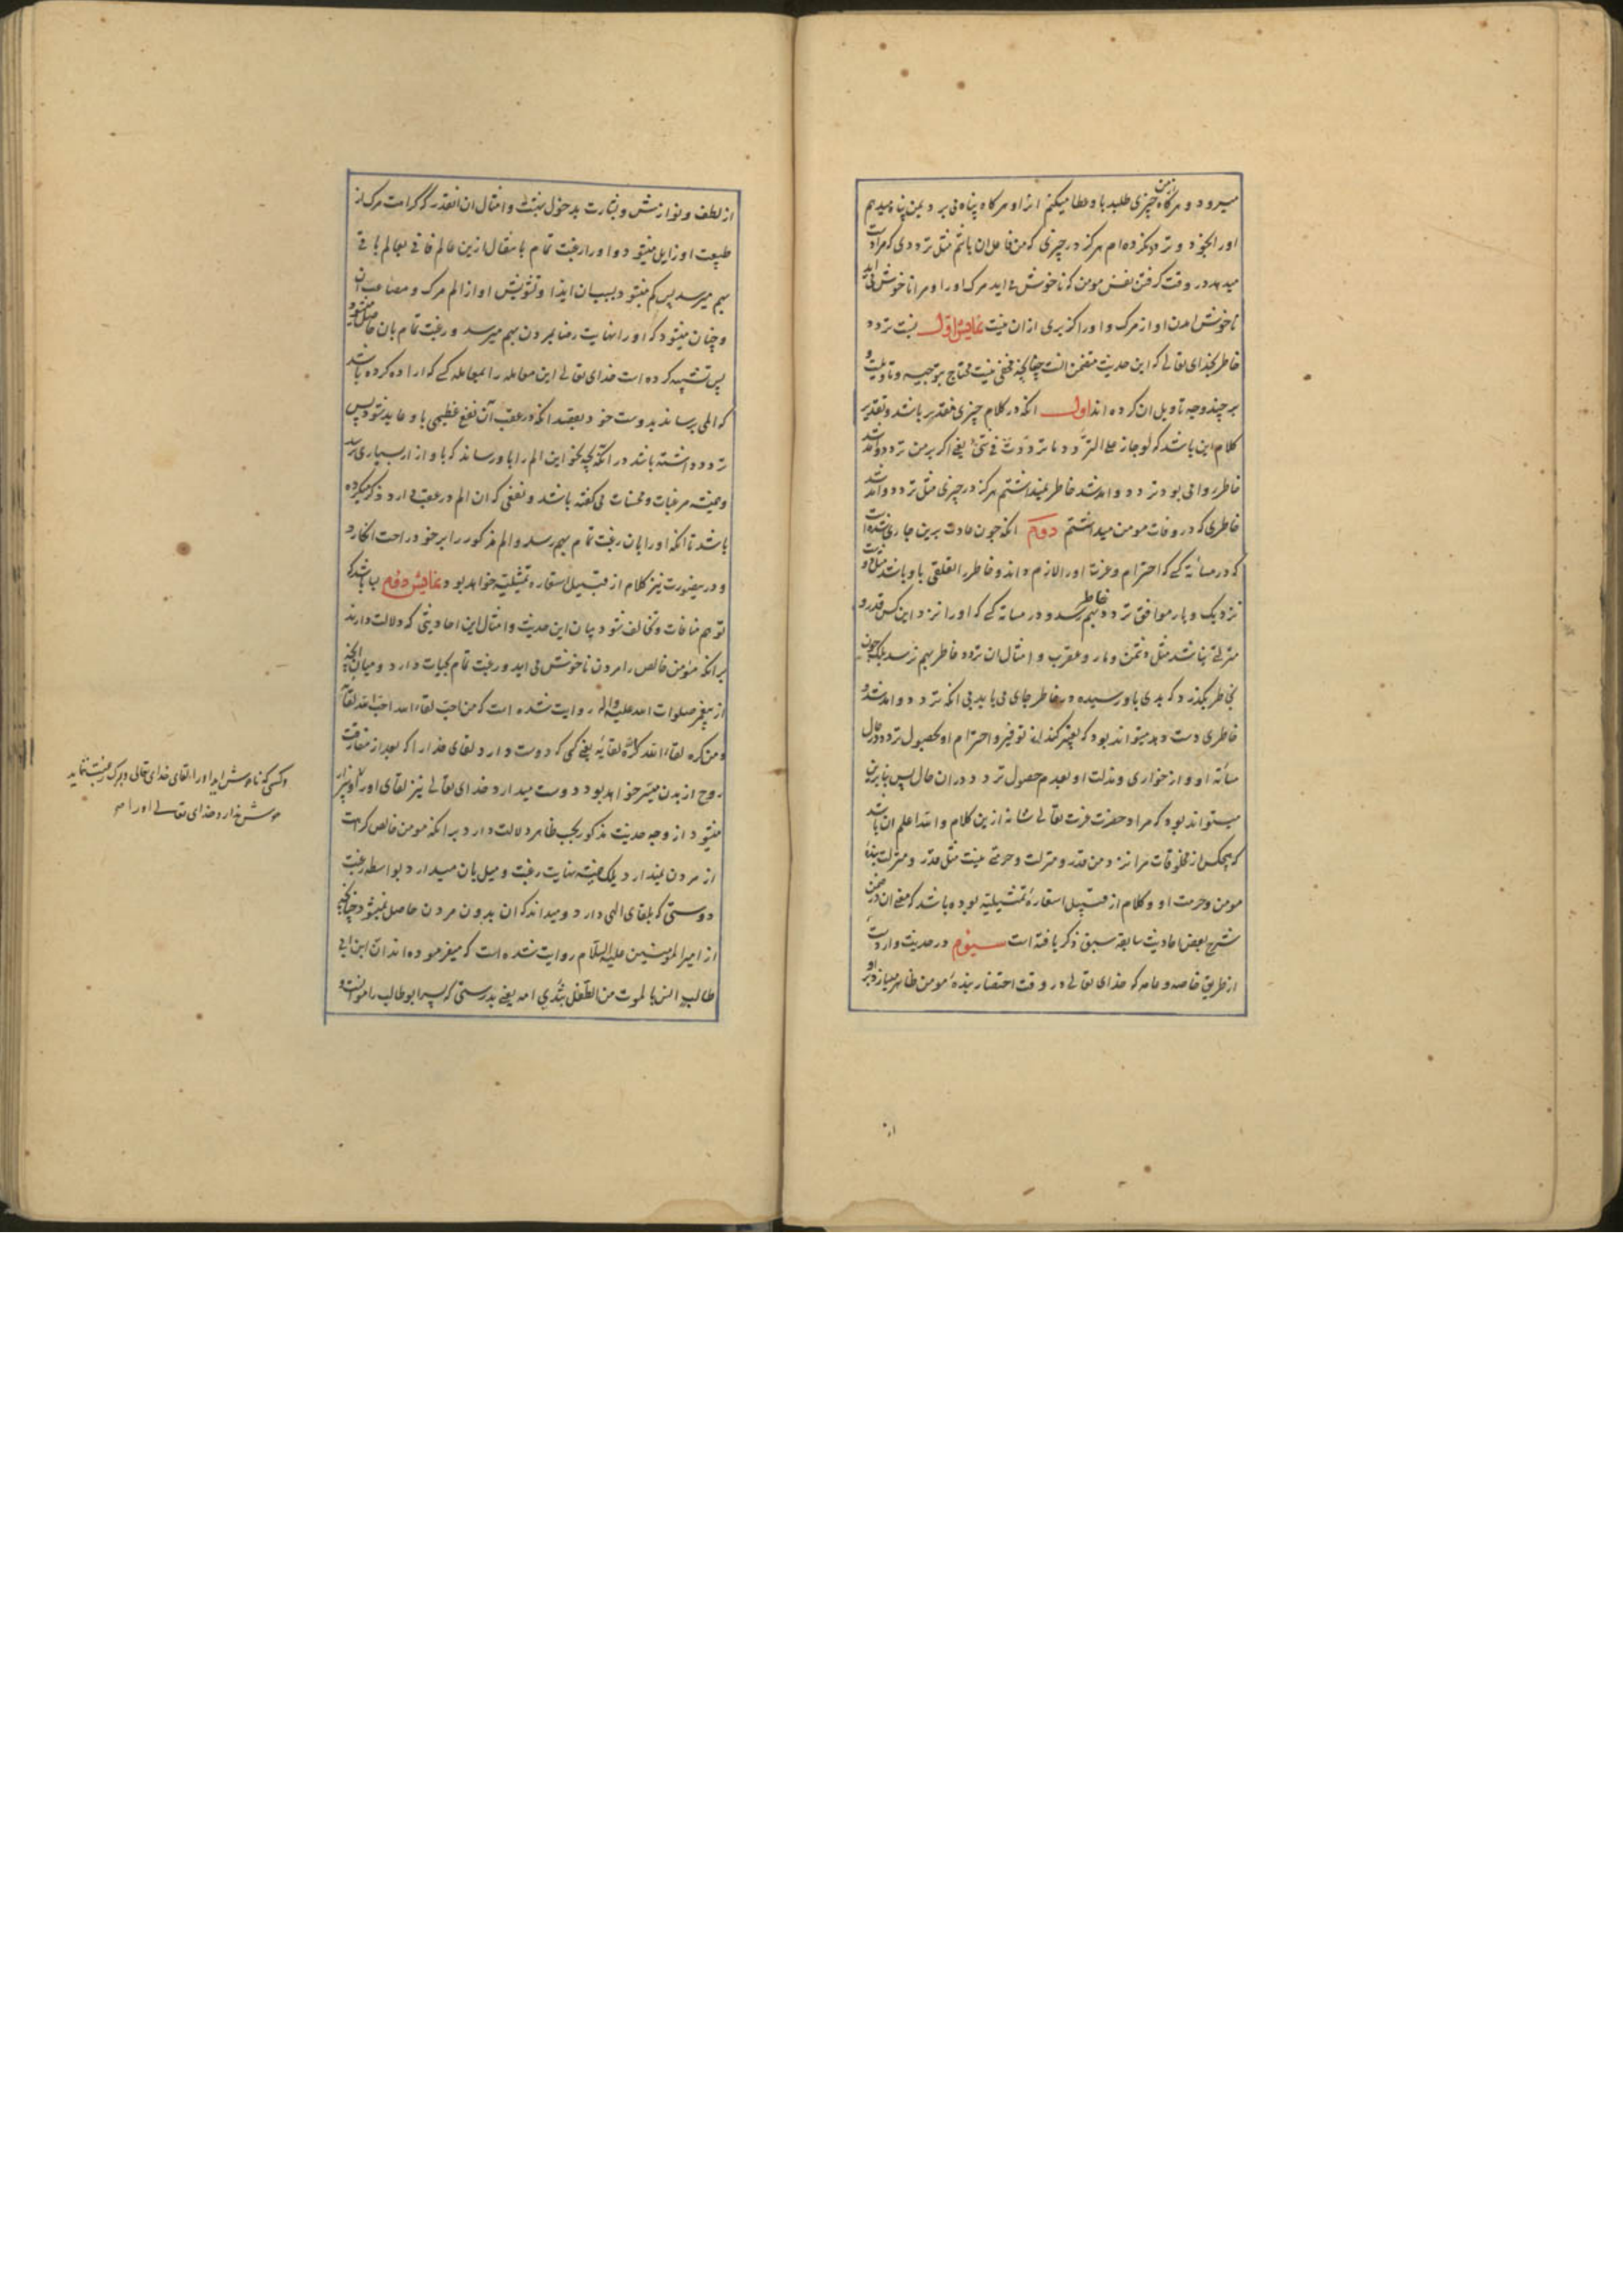 میرود و هرگاه از من چیزی طلبد باو عطا میکنم انرا و هرگاه پناه می برد بمن پناه میدهم
اورا بخود و تردد نکرده‌ام هرگز در چیزی که من فاعل ان باشم مثل ترددی که مرا دست
میدهد در وقت گرفتن نفس مومن که ناخوش می اید مرک اورا و مرا ناخوش می اید
ناخوش امدن او از مرک و اورا گزیری ازان نیست نمایش اول نسبت تردد
خاطر بخدای تعالی که این حدیث متضمن انست چنانچه مخفی نیست محتاج بتوجیه و تاویلست و
بر چند وجه تاویل ان کرده اند اول انکه در کلام چیزی مقدر باشد و تقدیر
کلام این باشد که لو جاز علی التردد ما ترددت فی شئ یعنی اگر بر من تردد و امد شد
خاطر روا می بود تردد و امد شد خاطر نمیداشتم هرگز در چیزی مثل تردد و امد شد
خاطری که در وفات مومن میداشتم دوم انکه چون عادت برین جاری شده است
که در مسائه کسی که احترام و عزت اورا لازم داند و خاطر را تعلقی باو باشد مثل دوست
نزدیک و یار موافق تردد خاطر بهم رسد و در مسائه کسی که اورا نزد این کس قدر و
منزلتی نباشد مثل دشمن و مار و عقرب و امثال ان تردد خاطر بهم نرسد بلکه چون
بخاطر بگذرد که بدی باو رسیده در خاطر جای می یابد بی انکه تردد و امد شد
خاطری دست دهد میتواند بود که تعبیر کنند از توقیر و احترام او بحصول تردد در حال
مسائه او و از خواری و مذلت او بعدم حصول تردد دران حال پس بنابرین
میتواند بود که مراد حضرت عزت تعالی شانه ازین کلام والله اعلم ان باشد
که هیچکس از مخلوقات مرا نزد من قدر و منزلت و حرمتی نیست مثل قدر و منزلت بنده
مومن و حرمت او و کلام از قبیل استعارهٔ تمثیلیه بوده باشد که معنی ان در ضمن
شرح بعض احادیث سابقه سبق ذکر یافته است سیوم در حدیث وارد است
از طریق خاصه و عامه که خدای تعالی در وقت احتضار بندهٔ مومن ظاهر میسازد بر او
از
از لطف و نوازش و بشارت بدخول بهشت و امثال ان انقدر که کراهت مرک از
طبیعت او زایل میشود و اورا رغبت تمام بانتقال ازین عالم فانی بعالم باقی
بهم میرسد پس کم میشود بسبب ان ایذا و تشویش او از الم مرک و مصاعب ان
و چنان میشود که اورا نهایت رضا بمردن بهم میرسد و رغبت تمام بان حاصل میشود
پس تشبیه کرده است خدای تعالی این معامله را بمعامله کسی که اراده کرده باشد
که المی برساند بدوست خود بقصد انکه در عقب آن نفع عظیمی باو عاید شود پس
تردد داشته باشد در انکه بچه نحو این الم را باو رساند که باو ازار بسیاری نرسد
و همیشه مرغبات و محسنات می گفته باشد و نفعی که ان الم در عقب دارد ذکر میکرده
باشد تا انکه اورا بان رغبت تمام بهم رسد و الم مذکور را بر خود راحت انکارد
و درینصورت نیز کلام از قبیل استعارهٔ تمثیلیه خواهد بود نمایش دوم باید که
توهم منافات و تخالف نشود میان این حدیث و امثال این احادیثی که دلالت دارند
بر انکه مومن خالص را مردن ناخوش می اید و رغبت تمام بحیات دارد و میان انچه
از پیغمبر صلوات الله علیه واله روایت شده است که من احب لقاء الله احب الله لقاءه
و من کره لقاء الله کره لقائه یعنی کسی که دوست دارد لقای خدا را که بعد از مفارقت
روح از بدن میسر خواهد بود دوست میدارد خدای تعالی نیز لقای اورا و بیزار
میشود از وجه حدیث مذکور بحسب ظاهر دلالت دارد بر انکه مومن خالص کراهت
از مردن نمیدارد بلکه همیشه نهایت رغبت و میل بان میدارد بواسطه رغبت
دوستی که بلقای الهی دارد و میداند که ان بدون مردن حاصل نمیشود چنانچه
از امیر المومنین علیه السلام روایت شده است که میفرموده اند ان ابن ابی
طالب انس بالموت من الطفل بثدی امه یعنی بدرستی که پسر ابو طالب را موانست و
و کسی که ناخوش اید اورا لقای خدای تعالی و بمرک رغبت ننماید
خوش ندارد خدای تعالی اورا